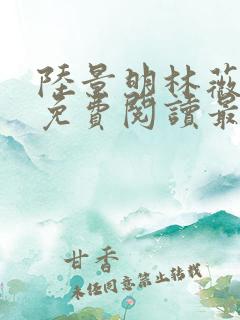 陸景明林薇
免費閱讀最
甘香
未經同意禁止轉載